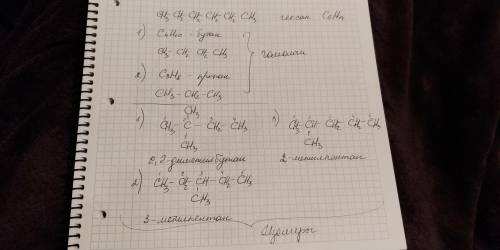 CH3 CH2 CH2 CH2 CH2 CH3 гексан C6H14
1) C4H10 - бутан
CH3 - CH2 CH2 CH3
гомологи
2) C3H8 - пропан
CH3 - CH2 - CH3
CH3
1) CH3 - C - CH2 - CH3
CH3
2,2-диметилбутан
3) CH3 - CH - CH2 - CH2 - CH3
CH3
2-метилпентан
2) CH3 - CH2 - CH - CH2 - CH3
CH3
3-метилпентан
Изомеры